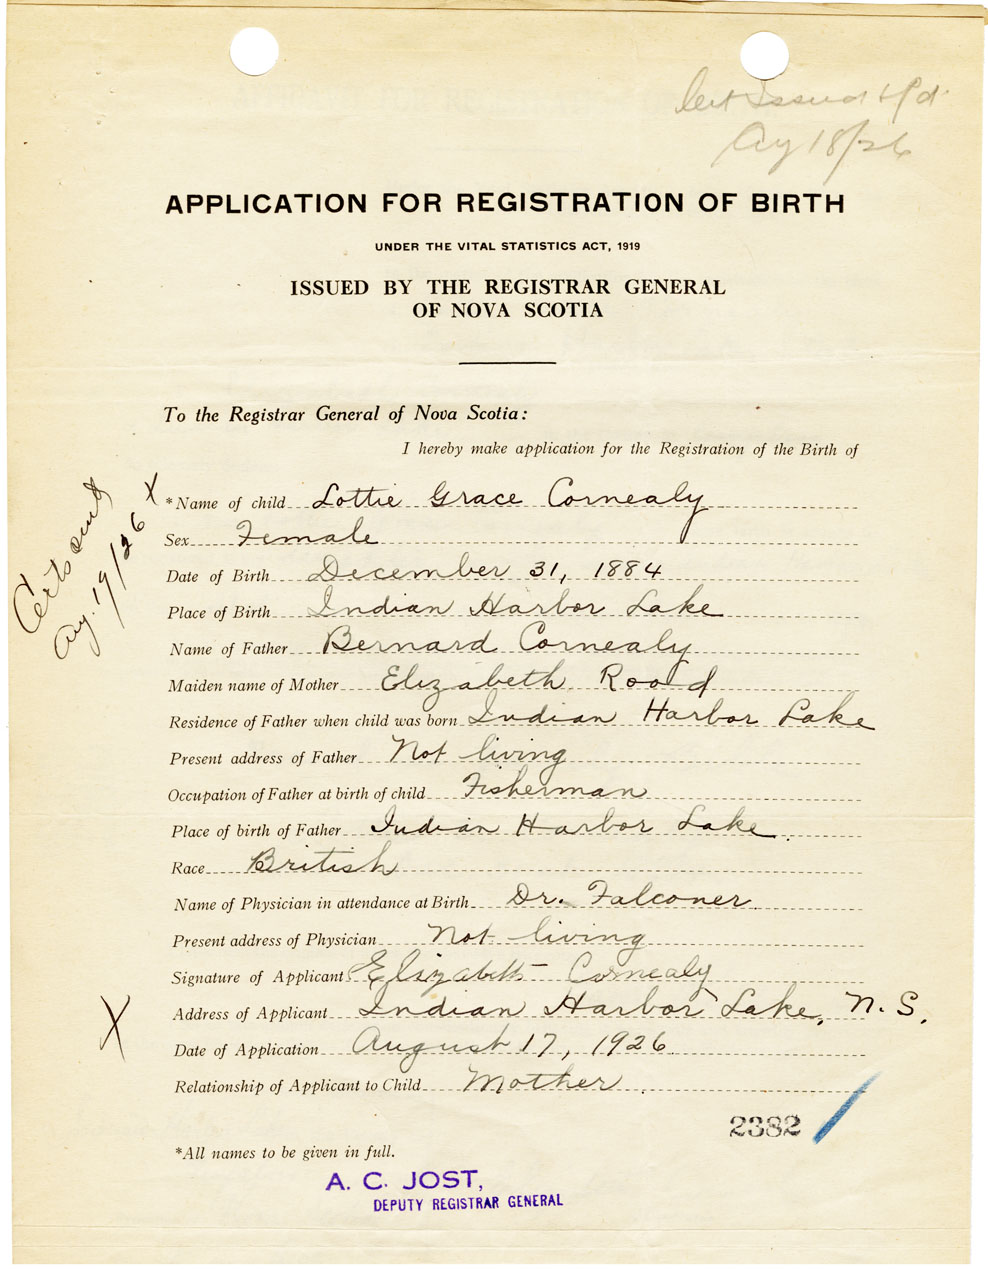 Cert Issued &
Aug 18/26
APPLICATION FOR REGISTRATION OF BIRTH
UNDER THE VITAL STATISTICS ACT, 1919
ISSUED BY THE REGISTRAR GENERAL
OF NOVA SCOTIA
To the Registrar General of Nova Scotia:
I hereby make application for the Registration of the Birth of
*Name of child Lottie Grace Cornealy
Sex Female
Date of Birth December 31, 1884
Place of Birth Indian Harbor Lake
Name of Father Bernard Cornealy
Maiden name of Mother Elizabeth Rood
Residence of Father when child was born Indian Harbor Lake
Present address of Father Not living
Occupation of Father at birth of child Fisherman
Place of birth of Father Indian Harbor Lake.
Race British
Name of Physician in attendance at Birth Dr. Falconer
Present address of Physician Not living
Signature of Applicant Elizabeth Cornealy
X Address of Applicant Indian Harbor Lake, N. S.
Date of Application August 17, 1926
Relationship of Applicant to Child Mother
2382
*All names to be given in full.
A. C. JOST,
DEPUTY REGISTRAR GENERAL
Cert sent X
Aug. 19/26